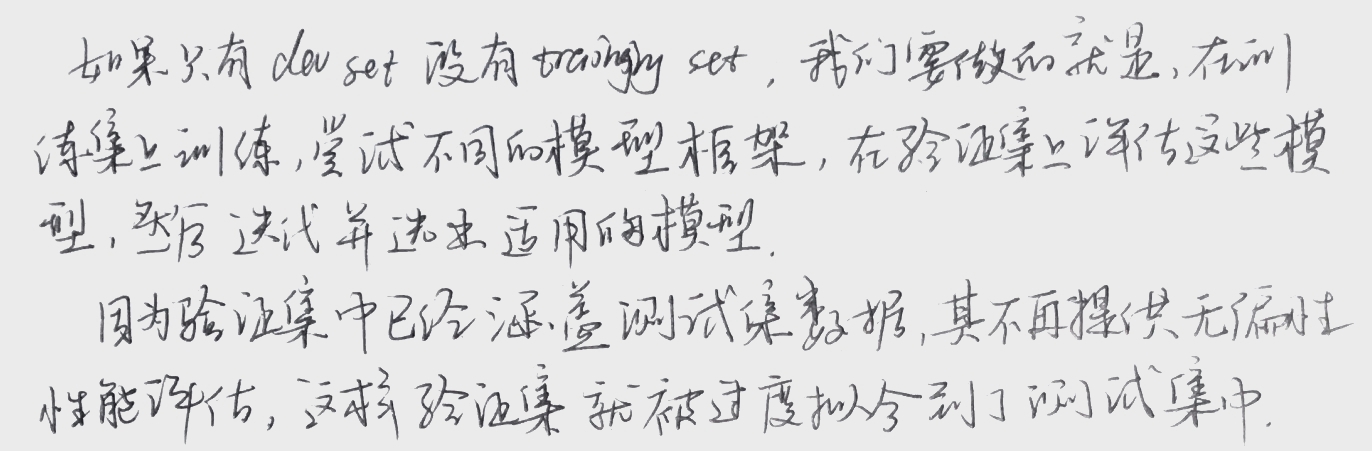 如果只有 dev set 没有 training set，我们要做的就是，在训
练集上训练，尝试不同的模型框架，在验证集上评估这些模
型，然后迭代并选出适用的模型.
因为验证集中已经涵盖测试集数据，其不再提供无偏性
性能评估，这样验证集就被过度拟合到了测试集中.